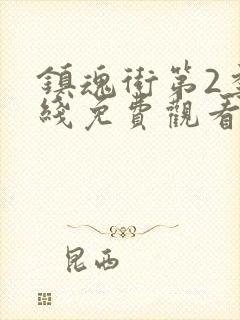 鎮魂街第2季
綫免費觀看
昆西